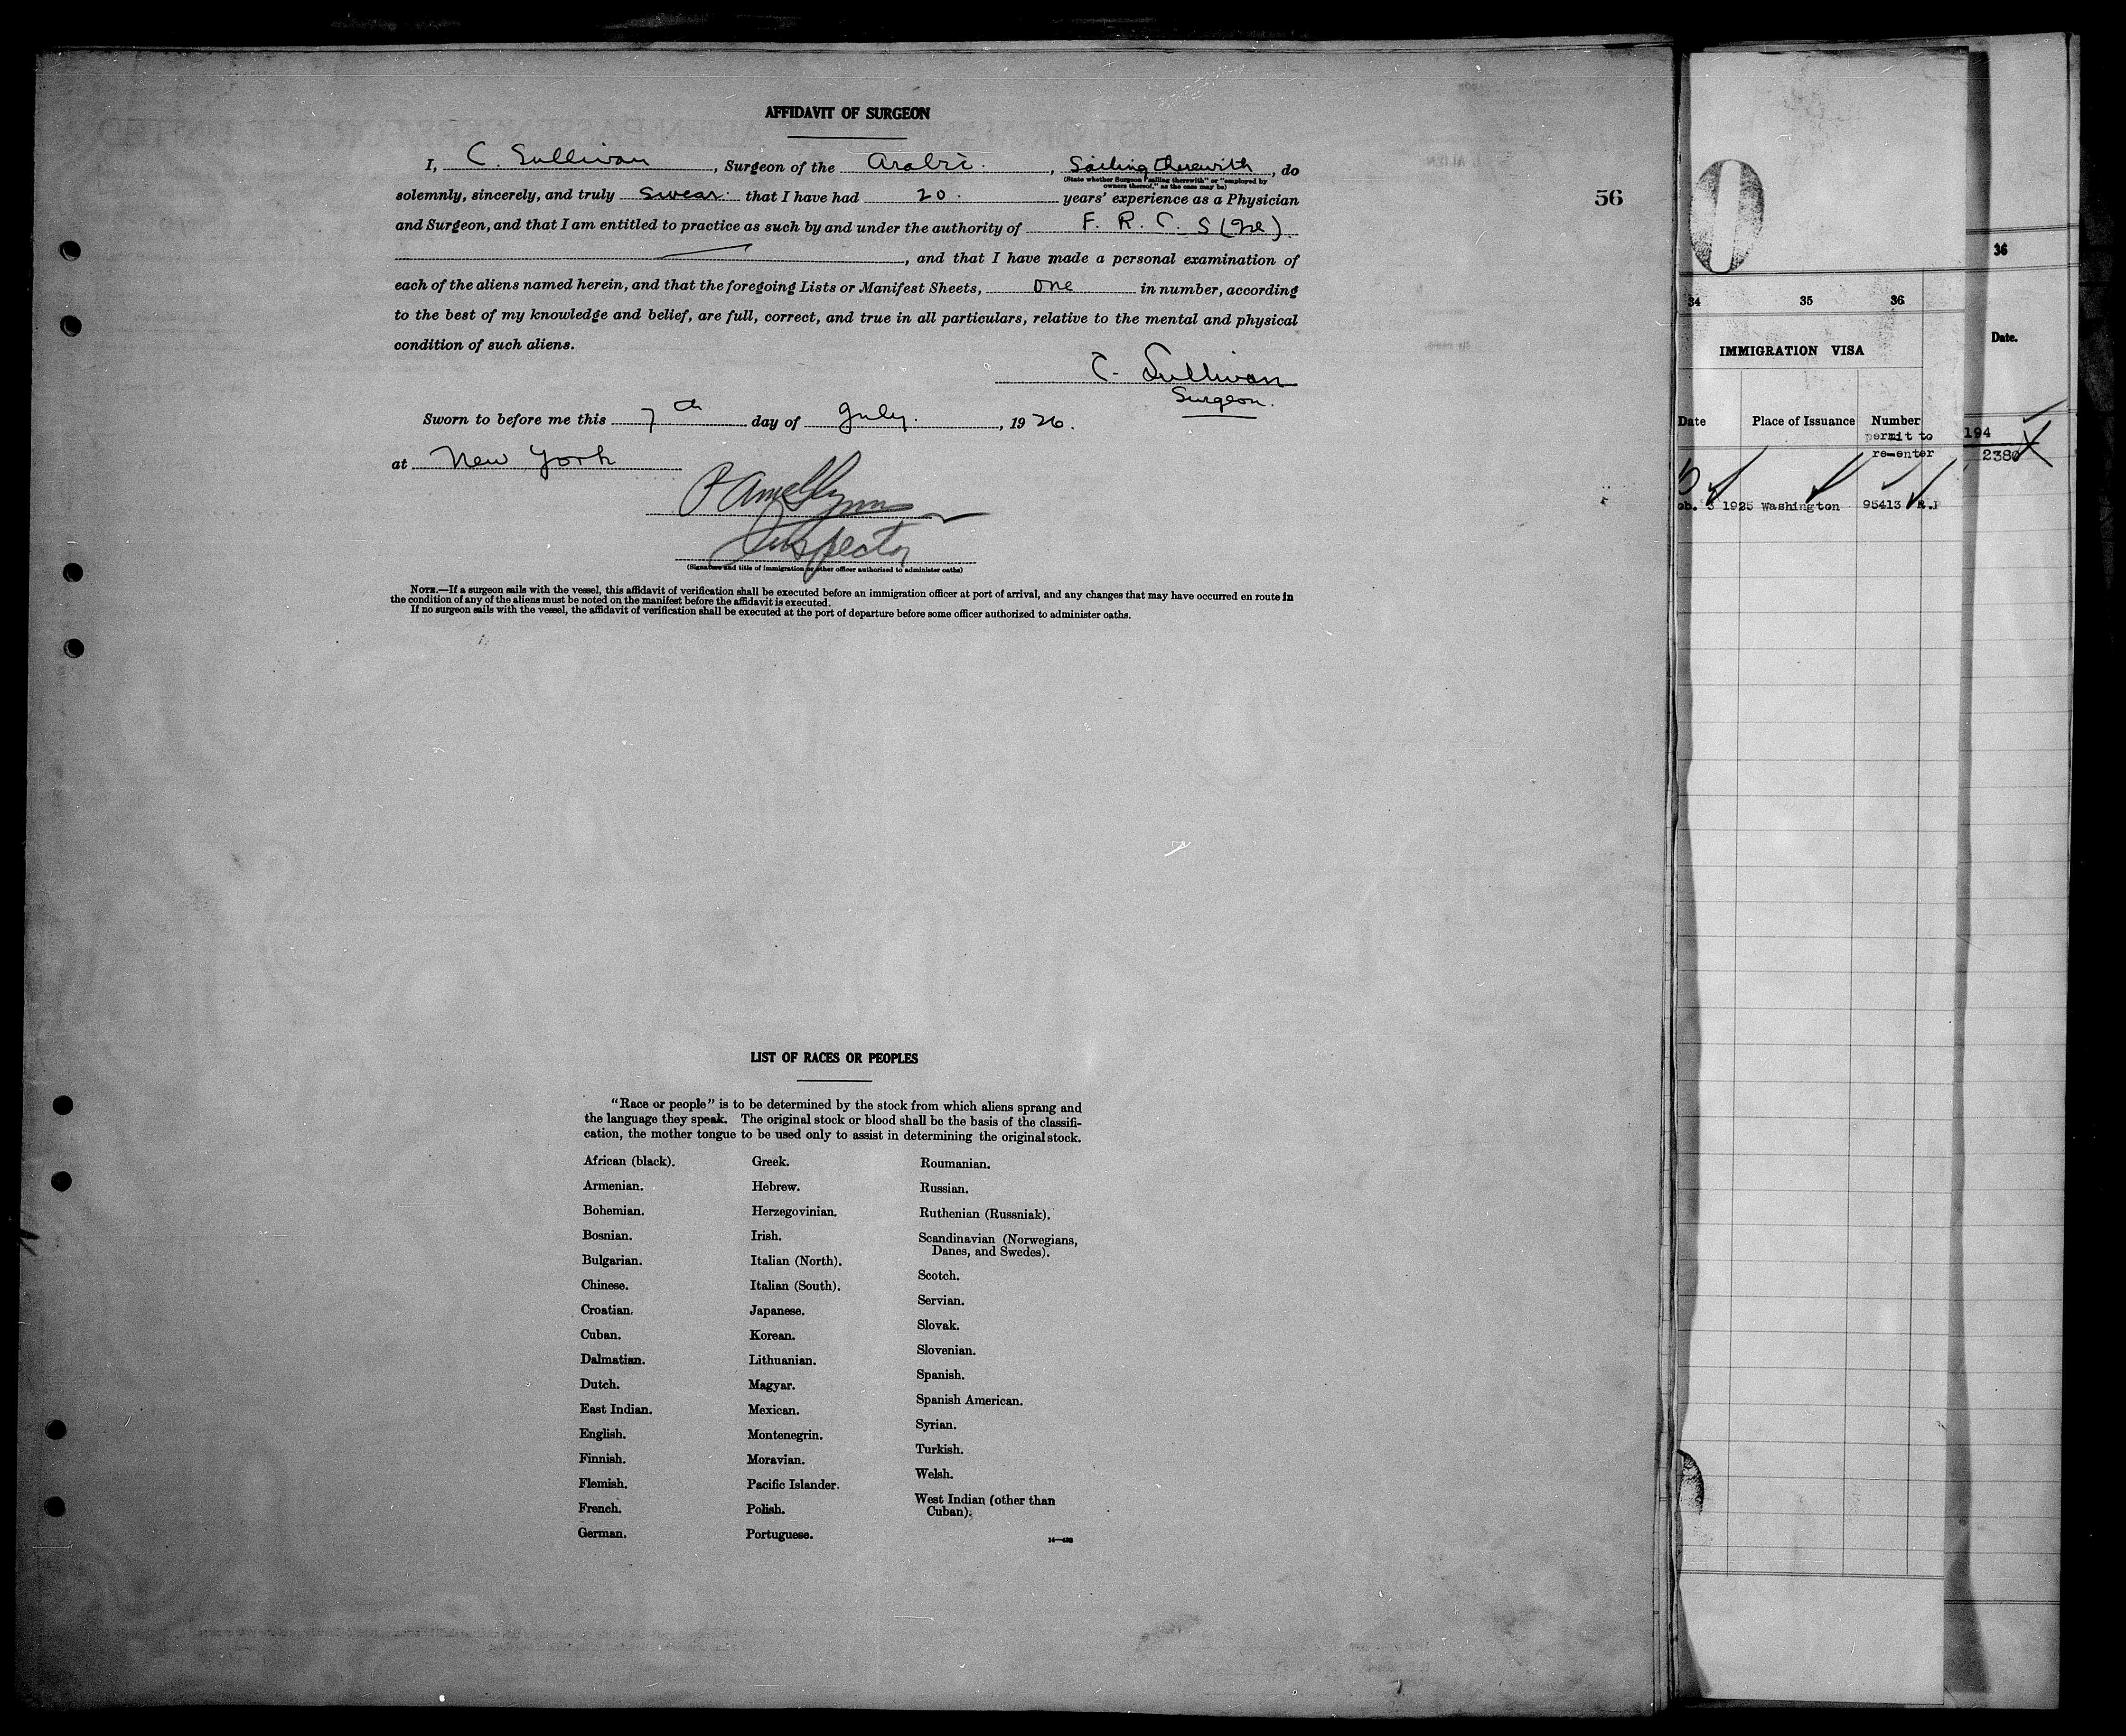 AFFIDAVIT OF SURGEON
I, C. Sullivan, Surgeon of the Arabic., Sailing therewith, do
(State whether Surgeon "sailing therewith" or "employed by
owners thereof," as the case may be)
solemnly, sincerely, and truly swear that I have had 20. years' experience as a Physician
and Surgeon, and that I am entitled to practice as such by and under the authority of F. R. C. S (Ire)
, and that I have made a personal examination of
each of the aliens named herein, and that the foregoing Lists or Manifest Sheets, one in number, according
to the best of my knowledge and belief, are full, correct, and true in all particulars, relative to the mental and physical
condition of such aliens.
C. Sullivan
Surgeon.
Sworn to before me this 7th day of July., 1926.
at New York
Inspector
(Signature and title of immigration or other officer authorized to administer oaths)
NOTE.—If a surgeon sails with the vessel, this affidavit of verification shall be executed before an immigration officer at port of arrival, and any changes that may have occurred en route in
the condition of any of the aliens must be noted on the manifest before the affidavit is executed.
If no surgeon sails with the vessel, the affidavit of verification shall be executed at the port of departure before some officer authorized to administer oaths.
56
LIST OF RACES OR PEOPLES
"Race or people" is to be determined by the stock from which aliens sprang and
the language they speak. The original stock or blood shall be the basis of the classifi-
cation, the mother tongue to be used only to assist in determining the original stock.
African (black).
Armenian.
Bohemian.
Bosnian.
Bulgarian.
Chinese.
Croatian.
Cuban.
Dalmatian.
Dutch.
East Indian.
English.
Finnish.
Flemish.
French.
German.
Greek.
Hebrew.
Herzegovinian.
Irish.
Italian (North).
Italian (South).
Japanese.
Korean.
Lithuanian.
Magyar.
Mexican.
Montenegrin.
Moravian.
Pacific Islander.
Polish.
Portuguese.
Roumanian.
Russian.
Ruthenian (Russniak).
Scandinavian (Norwegians,
Danes, and Swedes).
Scotch.
Servian.
Slovak.
Slovenian.
Spanish.
Spanish American.
Syrian.
Turkish.
Welsh.
West Indian (other than
Cuban).
34 35 36
IMMIGRATION VISA
Date Place of Issuance Number
permit to
re-enter
1925 Washington 95413
36
Date.
194
2380